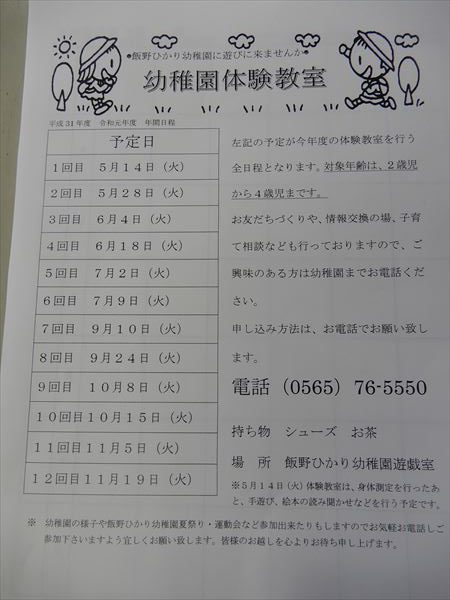 ●飯野ひかり幼稚園に遊びに来ませんか●
幼稚園体験教室
平成31年度　令和元年度　年間日程
予定日
1回目　5月14日（火）
2回目　5月28日（火）
3回目　6月4日（火）
4回目　6月18日（火）
5回目　7月2日（火）
6回目　7月9日（火）
7回目　9月10日（火）
8回目　9月24日（火）
9回目　10月8日（火）
10回目10月15日（火）
11回目11月5日（火）
12回目11月19日（火）
左記の予定が今年度の体験教室を行う
全日程となります。対象年齢は、2歳児
から4歳児までです。
お友だちづくりや、情報交換の場、子育
て相談なども行っておりますので、ご
興味のある方は幼稚園までお電話くだ
さい。
申し込み方法は、お電話でお願い致し
ます。
電話（0565）76-5550
持ち物　シューズ　お茶
場　所　飯野ひかり幼稚園遊戯室
※5月14日（火）体験教室は、身体測定を行ったあ
と、手遊び、絵本の読み聞かせなどを行う予定です。
※　幼稚園の様子や飯野ひかり幼稚園夏祭り・運動会など参加出来たりもしますのでお気軽お電話しご
参加下さいますよう宜しくお願い致します。皆様のお越しを心よりお待ち申し上げます。